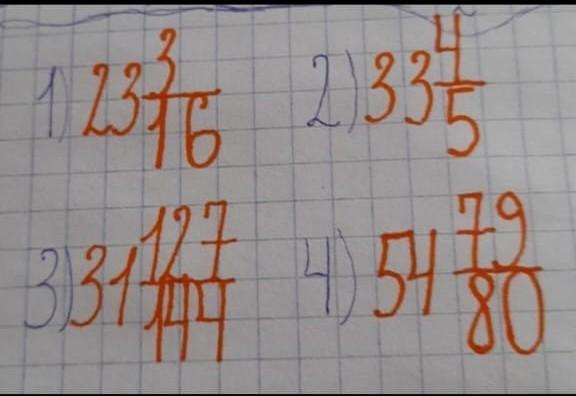 1) 23 3/16 2) 33 4/5
3) 31 127/144 4) 54 79/80